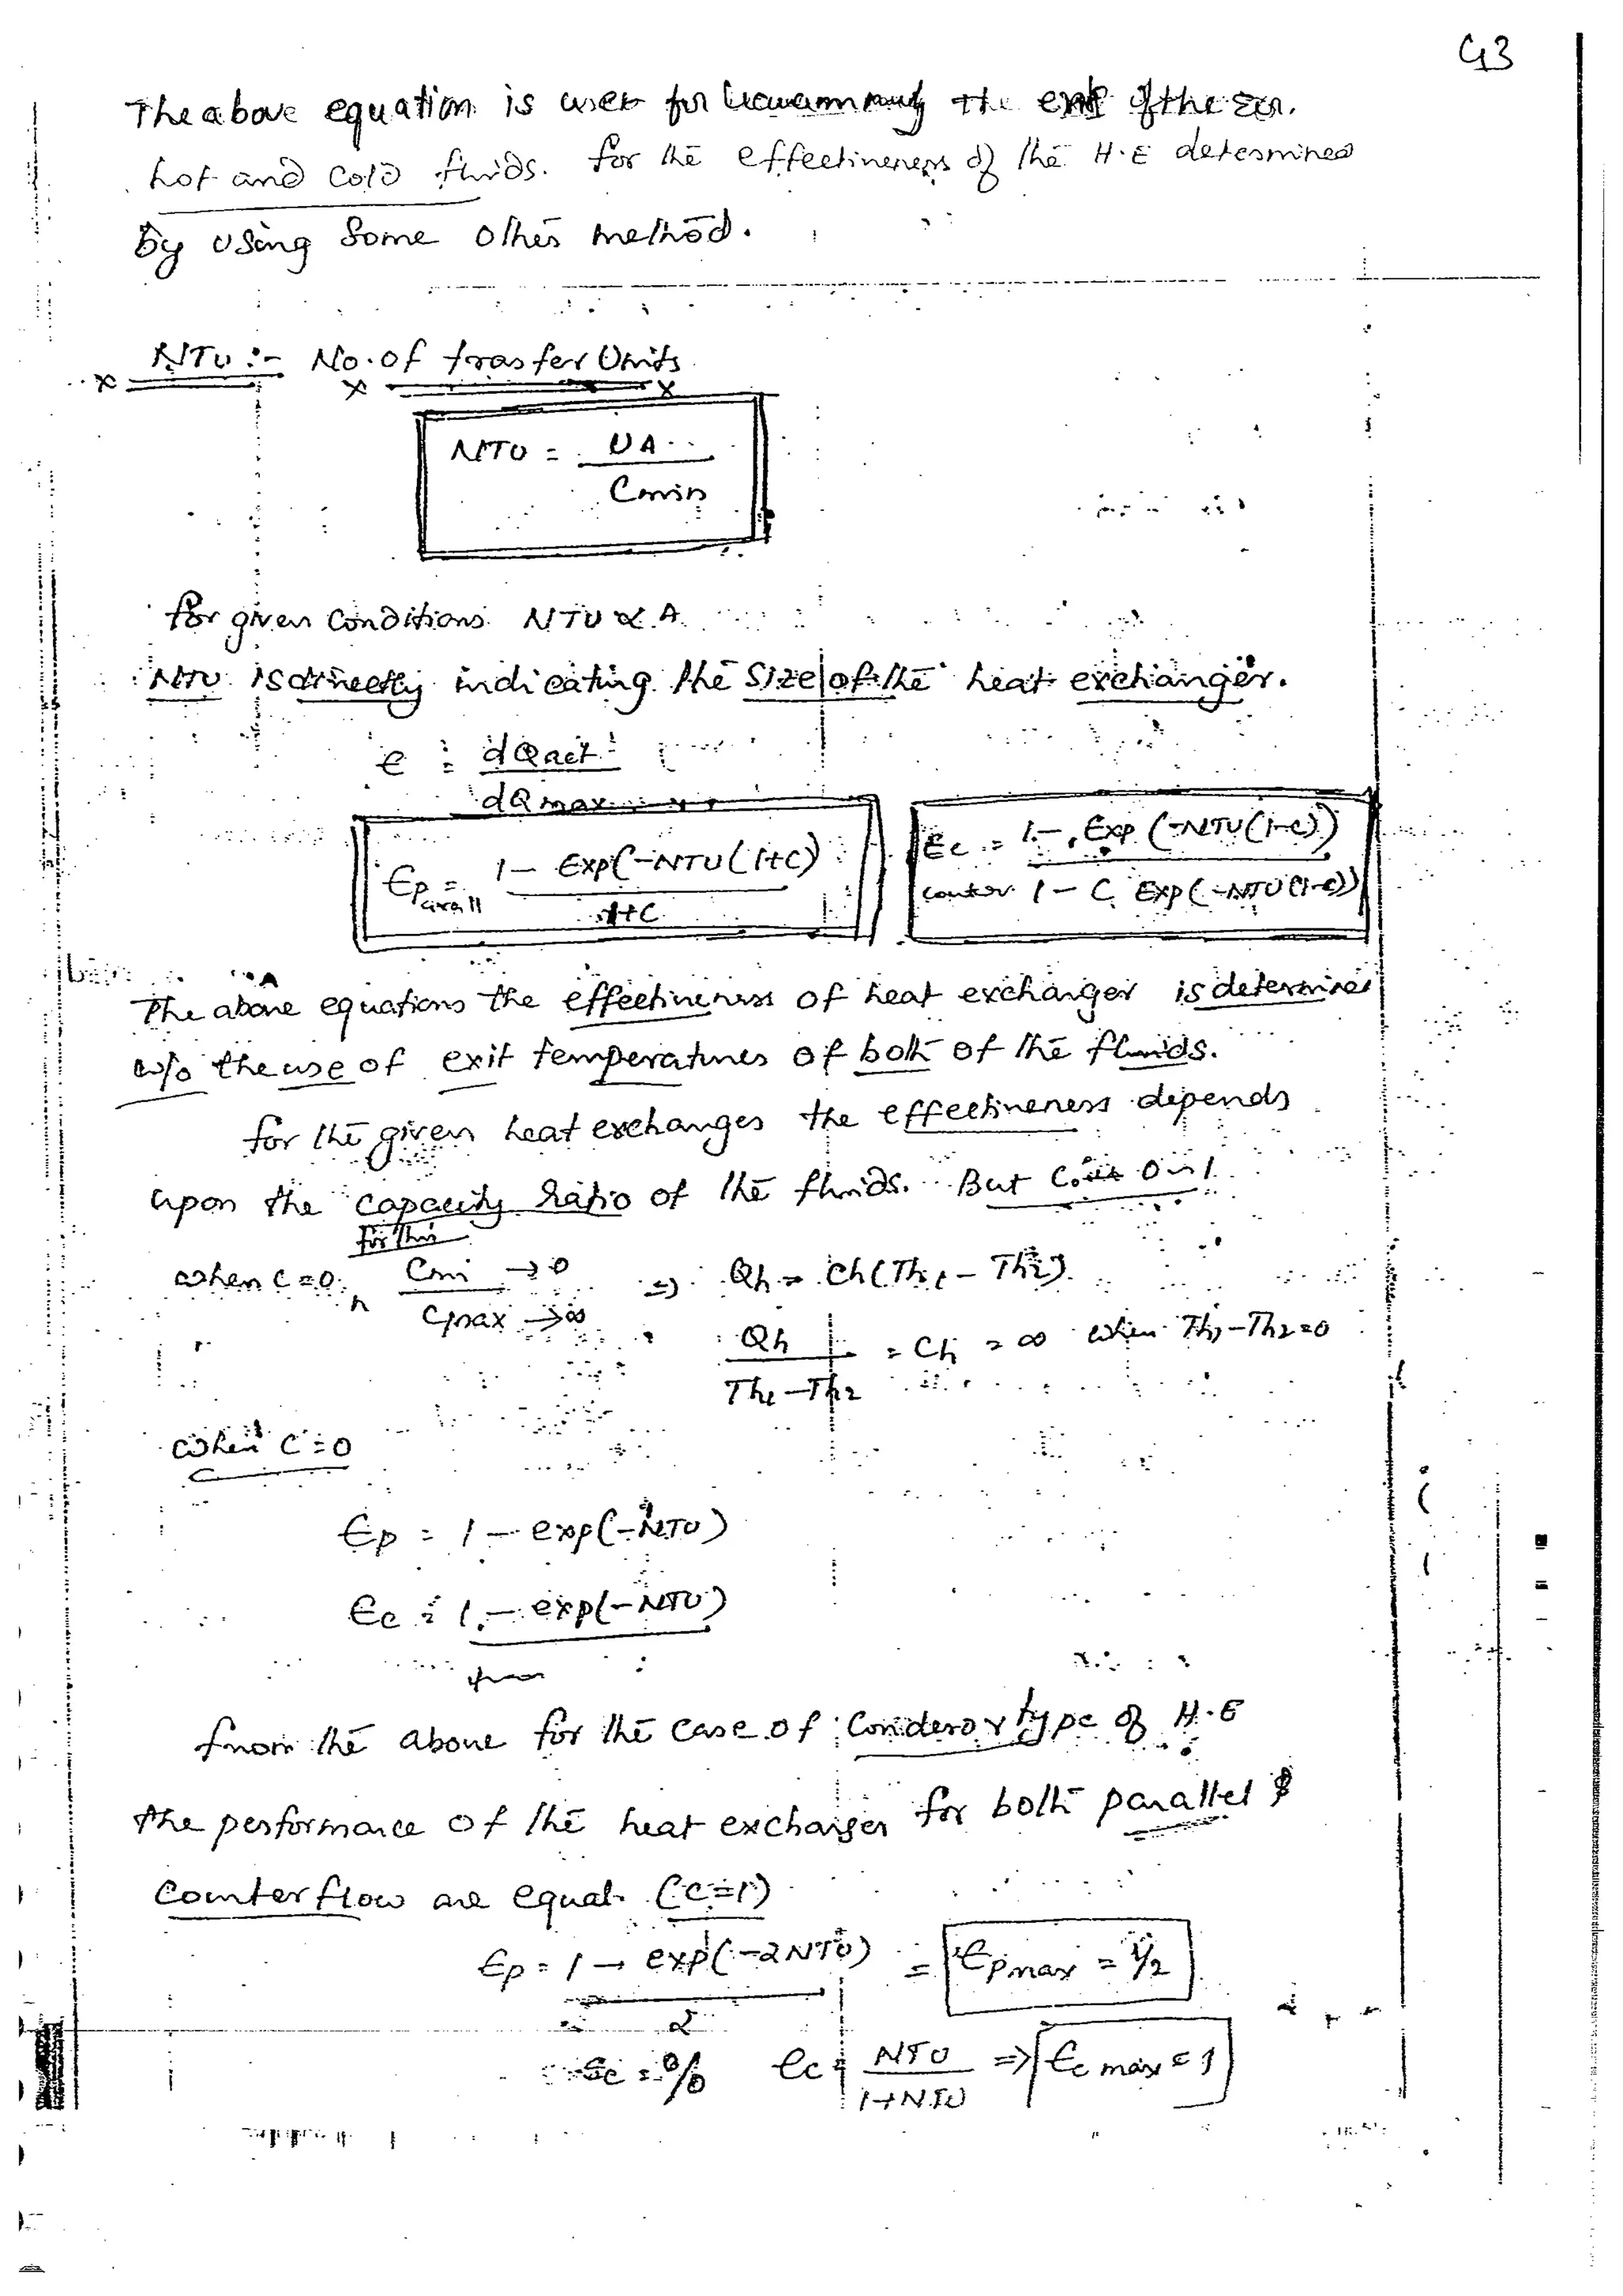 43
The above equation is used for the of the
hot and cold fluids. for the effectiveness of the H.E determined
by using Some other method.
NTU :- No. of trasfer Units
NTU = UA / Cmin
for given Conditions NTU ∝ A
NTU is directly indicating the Size of the heat exchanger.
ϵ = dQact / dQmax
ϵparall = 1 - Exp(-NTU(1+C) / 1+C
ϵc counter = 1 - Exp (-NTU(1-C)) / 1 - C Exp (-NTU(1-C))
The above equations the effectiveness of heat exchanger is determined
w/o the use of exit temperatures of both of the fluids.
for the given heat exchanger the effectiveness depends
upon the capacity ratio of the fluids. But C 0 1
for this
when C=0, Cmi → 0 / Cmax → ∞ ⇒ Qh = Ch(Th1 - Th2)
Qh / Th1 - Th2 = Ch = ∞ when Th1 - Th2 = 0
when C=0
ϵp = 1 - exp(-NTU)
ϵc = 1 - exp(-NTU)
from the above for the case of Condensor type of H.E
the performance of the heat exchanger for both parallel &
Counter flow are equal. (C=1)
ϵp = 1 - exp(-2NTU) / 2 = ϵpmax = 1/2
ϵc = 0/0 ϵc = NTU / 1+NTU ⇒ ϵc max = 1